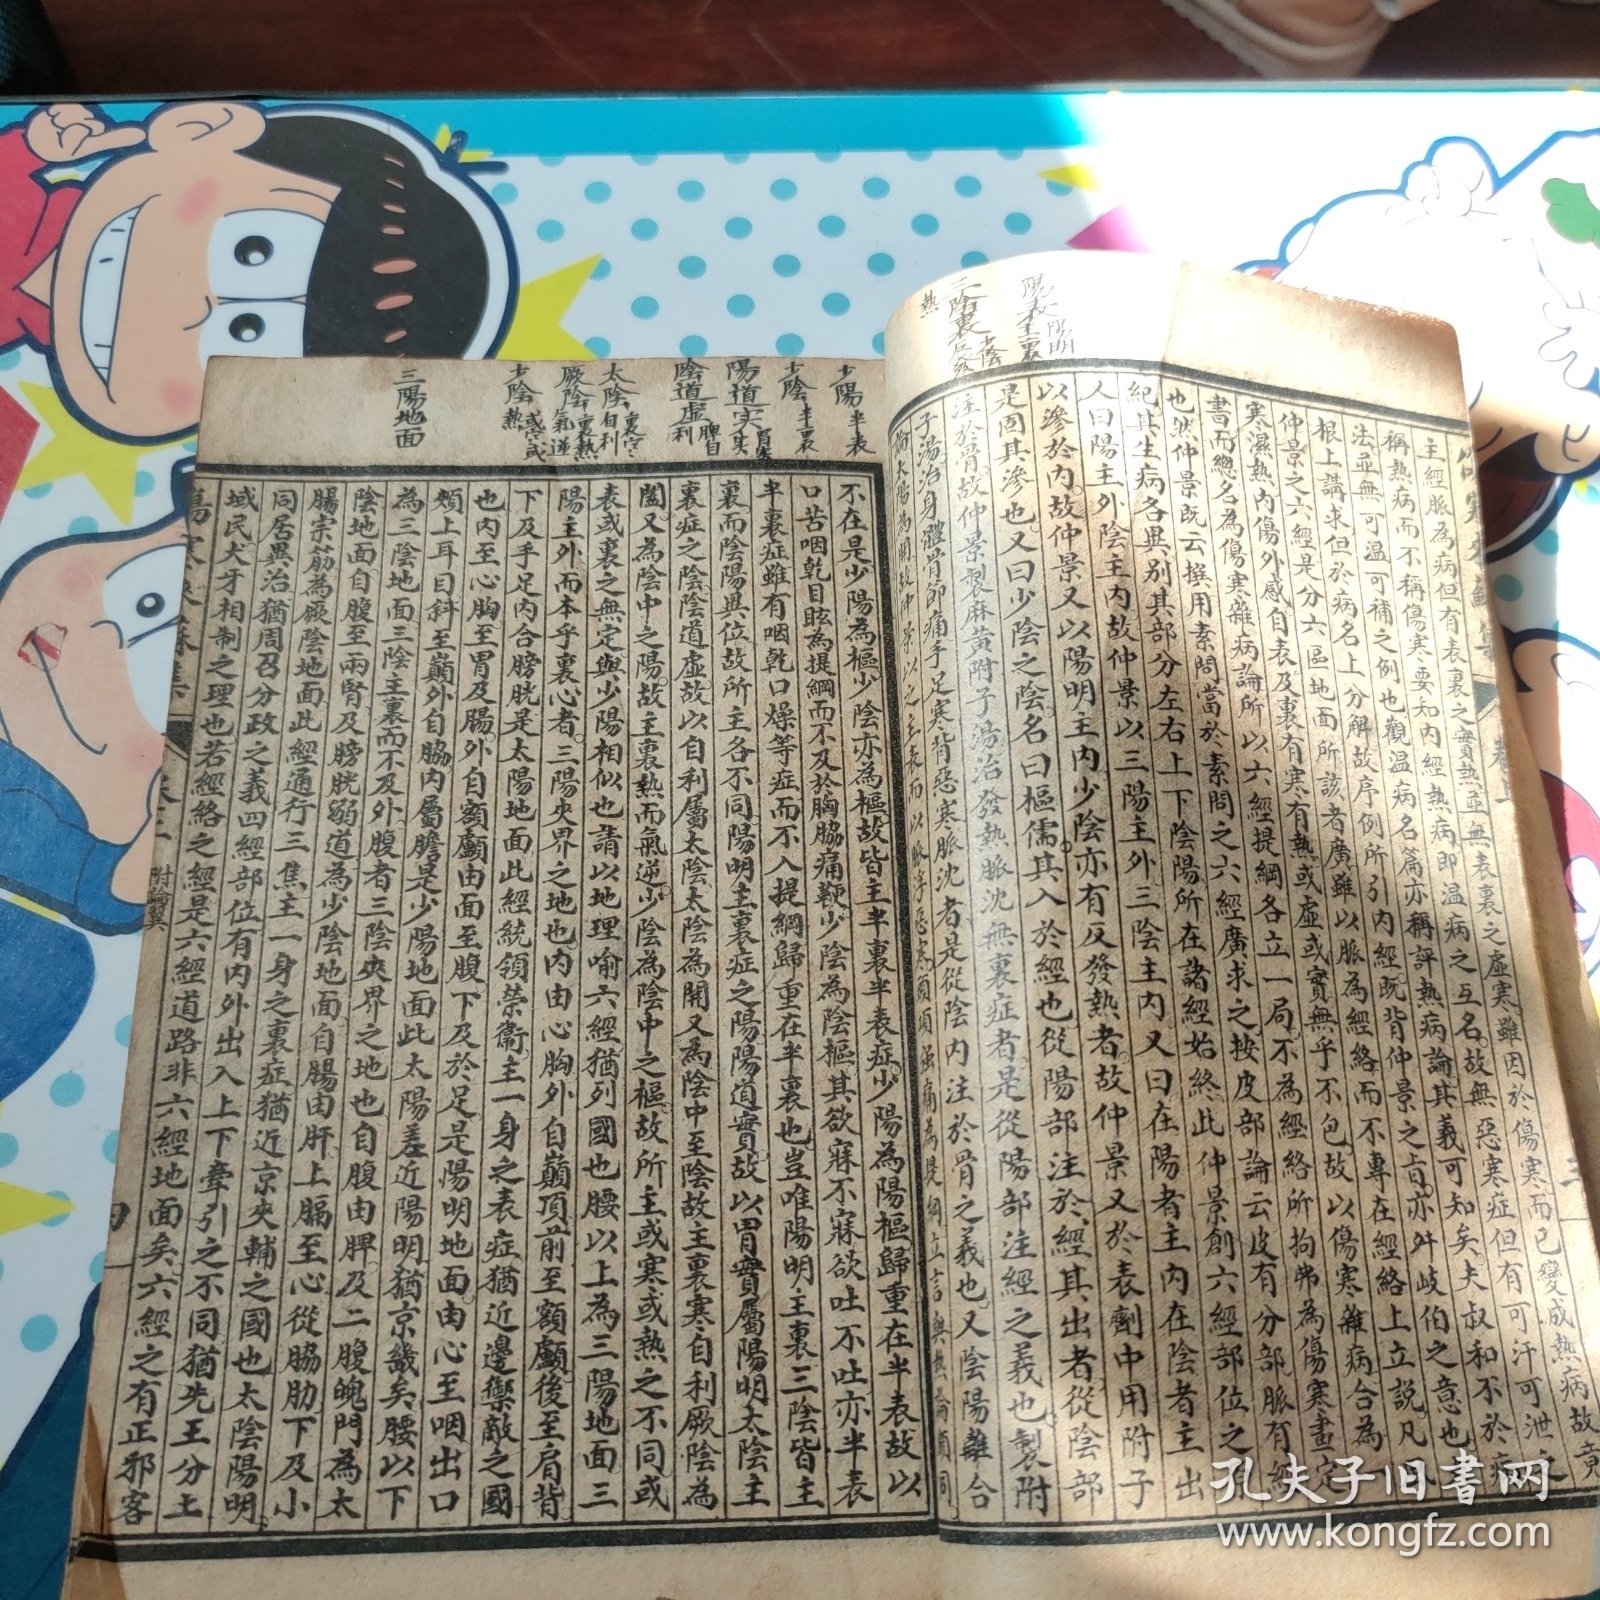 主經脈為病但有表裏之實熱並無表裏之虛寒雖因於傷寒而已變成熱病故竟
稱熱病而不稱傷寒要和內經熱病即温病之互名故無惡寒症但有可汗可泄之
法並無可温可補之例也觀温病名篇亦稱評熱病論其義可知矣夫叔和不於病
根上講求但於病名上分解故序例所引內經既背仲景之旨亦舛岐伯之意也
仲景之六經是分六區地面所該者廣雖以脈為經絡而不專在經絡上立說凡風
寒濕熱內傷外感自表及裏有寒有熱或虛或實無乎不包故以傷寒雜病合為一
書而總名為傷寒雜病論所以六經提綱各立一局不為經絡所拘弗為傷寒畫定
也然仲景既云撰用素問當於素問之六經廣求之按皮部論云皮有分部脈有經
紀其生病各異別其部分左右上下陰陽所在諸經始終此仲景創六經部位之自
人曰陽主外陰主內故仲景以三陽主外三陰主內又曰在陽者主內在陰者主出
以滲於內故仲景又以陽明主內少陰亦有反發熱者故仲景又於表劑中用附子
是固其滲也又曰少陰之陰名曰樞儒其入於經也從陽部注於經其出者從陰部
注於骨故仲景製麻黃附子湯治發熱脈沈無裏症者是從陽部注經之義也製附
子湯治身體骨節痛手足寒背惡寒脈沈者是從陰內注於骨之義也又陰陽離合
論太陽為開故仲景以之主表而以脈浮惡寒頭項强痛為提綱立言與熱論頗同
陽表
陽明主裏
三陰裏
少陰反發熱
不在是少陽為樞少陰亦為樞故皆主半裏半表症少陽為陽樞歸重在半表故以
口苦咽乾目眩為提綱而不及於胸脇痛鞕少陰為陰樞其欲寐不寐欲吐不吐亦半表
半裏症雖有咽乾口燥等症而不入提綱歸重在半裏也豈唯陽明主裏三陰皆主
裏而陰陽異位故所主各不同陽明主裏症之陽陽道實故以胃實屬陽明太陰主
裏症之陰陰道虛故以自利屬太陰太陰為開又為陰中至陰故主裏寒自利厥陰為
闔又為陰中之陽故主裏熱而氣逆少陰為陰中之樞故所主或寒或熱之不同或
表或裏之無定與少陽相似也請以地理喻六經猶列國也腰以上為三陽地面三
陽主外而本乎裏心者三陽夾界之地也內由心胸外自巔頂前至額顱後至肩背
下及乎足內合膀胱是太陽地面此經統領榮衛主一身之表症猶近邊禦敵之國
也內至心胸至胃及腸外自額顱由面至腹下及於足是陽明地面由心至咽出口
頰上耳目斜至巔外自脇內屬膽是少陽地面此太陽差近陽明猶京畿矣腰以下
為三陰地面三陰主裏而不及外腹者三陰夾界之地也自腹由脾及二腹魄門為太
陰地面自腹至兩腎及膀胱溺道為少陰地面自腸由肝上膈至心從脇肋下及小
腸宗筋為厥陰地面此經通行三焦主一身之裏症猶近京夾輔之國也太陰陽明
同居異治猶周召分政之義四經部位有內外出入上下牽引之不同猶先王分土
域民犬牙相制之理也若經絡之經是六經道路非六經地面矣六經之有正邪客
少陽半表
少陰半裏
陽道實胃實
陰道虛脾自利
太陰裏寒自利
厥陰裏熱氣逆
少陰或寒或熱
三陽地面
卷三
附論翼
四
孔夫子旧书网
www.kongfz.com